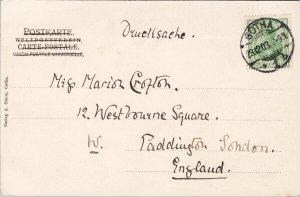 POSTKARTE
WELTPOSTVEREIN
CARTE POSTALE
UNION POSTALE UNIVERSELLE
Drucksache.
GOTHA
Miss Marion Crofton,
12. Westbourne Square.
W. Paddington London.
England.
Verlag A. Gotha.